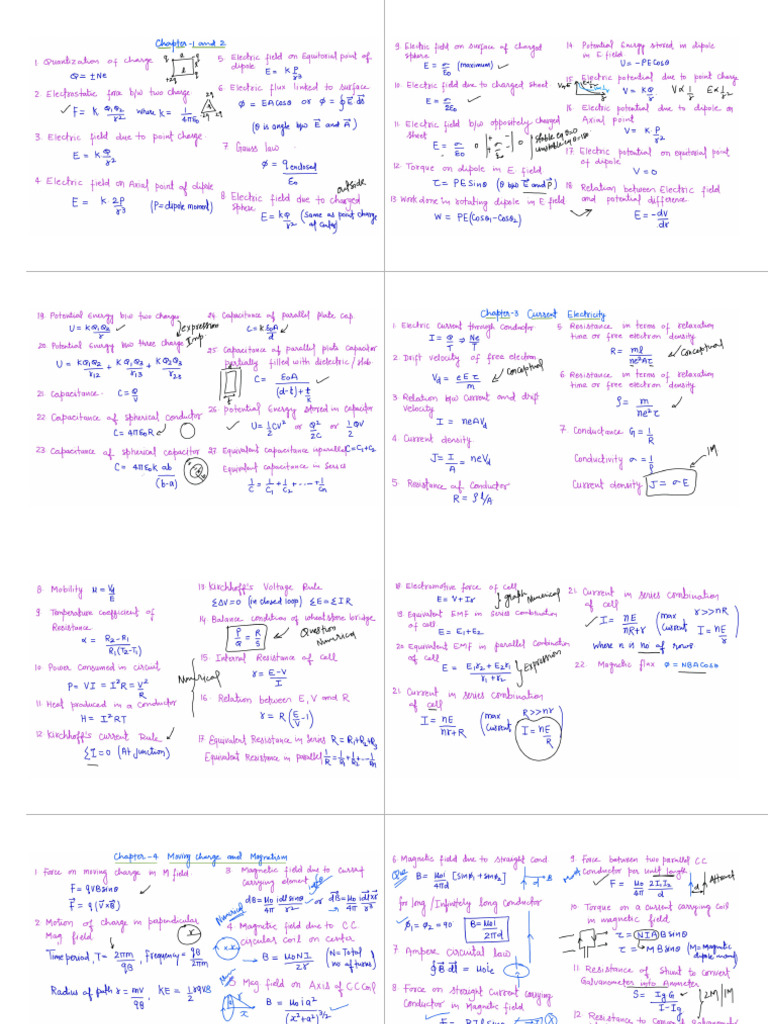 Chapter-1 and 2
1 Quantization of charge
Q = ± ne
2 Electrostatic force b/w two charge
F = K Q₁Q₂/r² where K = 1/4πε₀
3 Electric field due to point charge
E = KQ/r²
4 Electric field on Axial point of dipole
E = K·2P/r³ (P = dipole moment)
5 Electric field on Equitorial point of
dipole
E = K P/r³
6 Electric flux linked to surface
ϕ = EA cosθ or ϕ = ∮E⃗ds⃗
(θ is angle b/w E⃗ and A⃗)
7 Gauss law
ϕ = q enclosed/ε₀
outside
8 Electric field due to charged
sphere
E = KQ/r² (Same as point charge
at center)
9 Electric field on surface of charged
sphere
E = σ/ε₀ (maximum)
10 Electric field due to charged sheet
E = σ/2ε₀
11 Electric field b/w oppositely charged
sheet
E = σ/ε₀
stable eq θ=0
unstable eq θ=180
12 Torque on dipole in E field
τ = PE Sinθ (θ b/w E⃗ and P⃗)
13 Work done in rotating dipole in E field
W = PE(Cosθ₁-Cosθ₂)
14 Potential Energy stored in dipole
in E field
U = -PE Cosθ
15 Electric potential due to point charge
V = KQ/r V∝1/r E∝1/r²
16 Electric potential due to dipole on
Axial point
V = K P/r²
17 Electric potential on equitorial point
of dipole
V = 0
18 Relation between Electric field
and potential difference
E = -dV/dr
19 Potential Energy b/w two charges
U = KQ₁Q₂/r
expression
Imp
20 Potential Energy b/w three charge
U = KQ₁Q₂/r₁₂ + KQ₁Q₃/r₁₃ + KQ₂Q₃/r₂₃
21 Capacitance C = Q/V
22 Capacitance of spherical conductor
C = 4πε₀R
23 Capacitance of spherical capacitor
C = 4πε₀K ab/(b-a)
24 Capacitance of parallel plate cap
C = Kε₀A/d
25 Capacitance of parallel plate capacitor
partially filled with dielectric/slab
C = ε₀A/(d-t)+t/K
26 Potential Energy stored in capacitor
U = 1/2 CV² or Q²/2C or 1/2 QV
27 Equivalent capacitance in parallel C = C₁+C₂
Equivalent capacitance in series
1/C = 1/C₁ + 1/C₂ + ... + 1/Cn
Chapter-3 Current Electricity
1 Electric current through conductor
I = Q/T ⇒ Ne/T
2 Drift velocity of free electron
Vd = eEτ/m
Conceptual
3 Relation b/w Current and drift
velocity
I = neAVd
4 Current density
J = I/A = neVd
5 Resistance of Conductor
R = ρl/A
5 Resistance in terms of relaxation
time or free electron density
R = ml/ne²Aτ
Conceptual
6 Resistance in terms of relaxation
time or free electron density
ρ = m/ne²τ
7 Conductance G = 1/R
Conductivity σ = 1/ρ
1M
Current density J = σE
8 Mobility μ = Vd/E
9 Temperature coefficient of
Resistance
α = R₂-R₁/R₁(T₂-T₁)
10 Power Consumed in circuit
P = VI = I²R = V²/R
Numerical
11 Heat produced in a conductor
H = I²RT
12 Kirchhoff's Current Rule
ΣI = 0 (At junction)
13 Kirchhoff's Voltage Rule
ΣΔV=0 (in closed loop) ΣE=ΣIR
14 Balance condition of wheatstone bridge
P/Q = R/S
Question
Numerical
15 Internal Resistance of Cell
r = E-V/I
16 Relation between E, V and R
r = R(E/V-1)
17 Equivalent Resistance in series R=R₁+R₂+R₃
Equivalent Resistance in parallel 1/R=1/R₁+1/R₂+...1/Rn
18 Electromotive force of cell
E = V+Ir
graph Numerical
19 Equivalent EMF in series combination
of cell
E = E₁+E₂
20 Equivalent EMF in parallel combination
of cell
E = E₁r₂+E₂r₁/r₁+r₂
Expression
21 Current in series combination
of cell
I = nE/nr+R (max Current R>>nr I = nE/R)
21 Current in series combination
of cell
I = nE/nR+r (max current r>>nR I = nE/r)
where n is no of rows
22. Magnetic flux ϕ = NBA Cosθ
Chapter-4 Moving Charge and Magnetism
1 Force on moving charge in M field
F = qVB sinθ
F⃗ = q(V⃗×B⃗)
2 Motion of Charge in perpendicular
Mag field
Time period, T = 2πm/qB, Frequency = qB/2πm
Radius of path r = mv/qB KE = 1/2 rqvB
3 Magnetic field due to current
carrying element
dB = μ₀/4π idl sinθ/r² or dB⃗ = μ₀/4π idl⃗×r⃗/r³
Numerical
4 Magnetic field due to C.C
circular coil on center
B = μ₀NI/2r (N = Total
no of turns)
5 Mag field on Axis of CC Coil
B = μ₀ia²/(x²+a²)^3/2
6 Magnetic field due to straight Cond
B = μ₀i/4πd [sinϕ₁+sinϕ₂]
for long/Infinitely long conductor
ϕ₁=ϕ₂=90 B = μ₀i/2πd
7 Ampere Circuital law
∮B⃗dl⃗ = μ₀Ie
8 Force on straight Current carrying
Conductor in Magnetic field
9 Force between two parallel CC
Conductor per unit length
F = μ₀/4π 2I₁I₂/d
Attract
10 Torque on a current carrying coil
in magnetic field
τ = NIAB sinθ
τ = MB sinθ (M = Magnetic
dipole moment)
11 Resistance of Shunt to Convert
Galvanometer into Ammeter
S = IgG/I-Ig
2M/1M